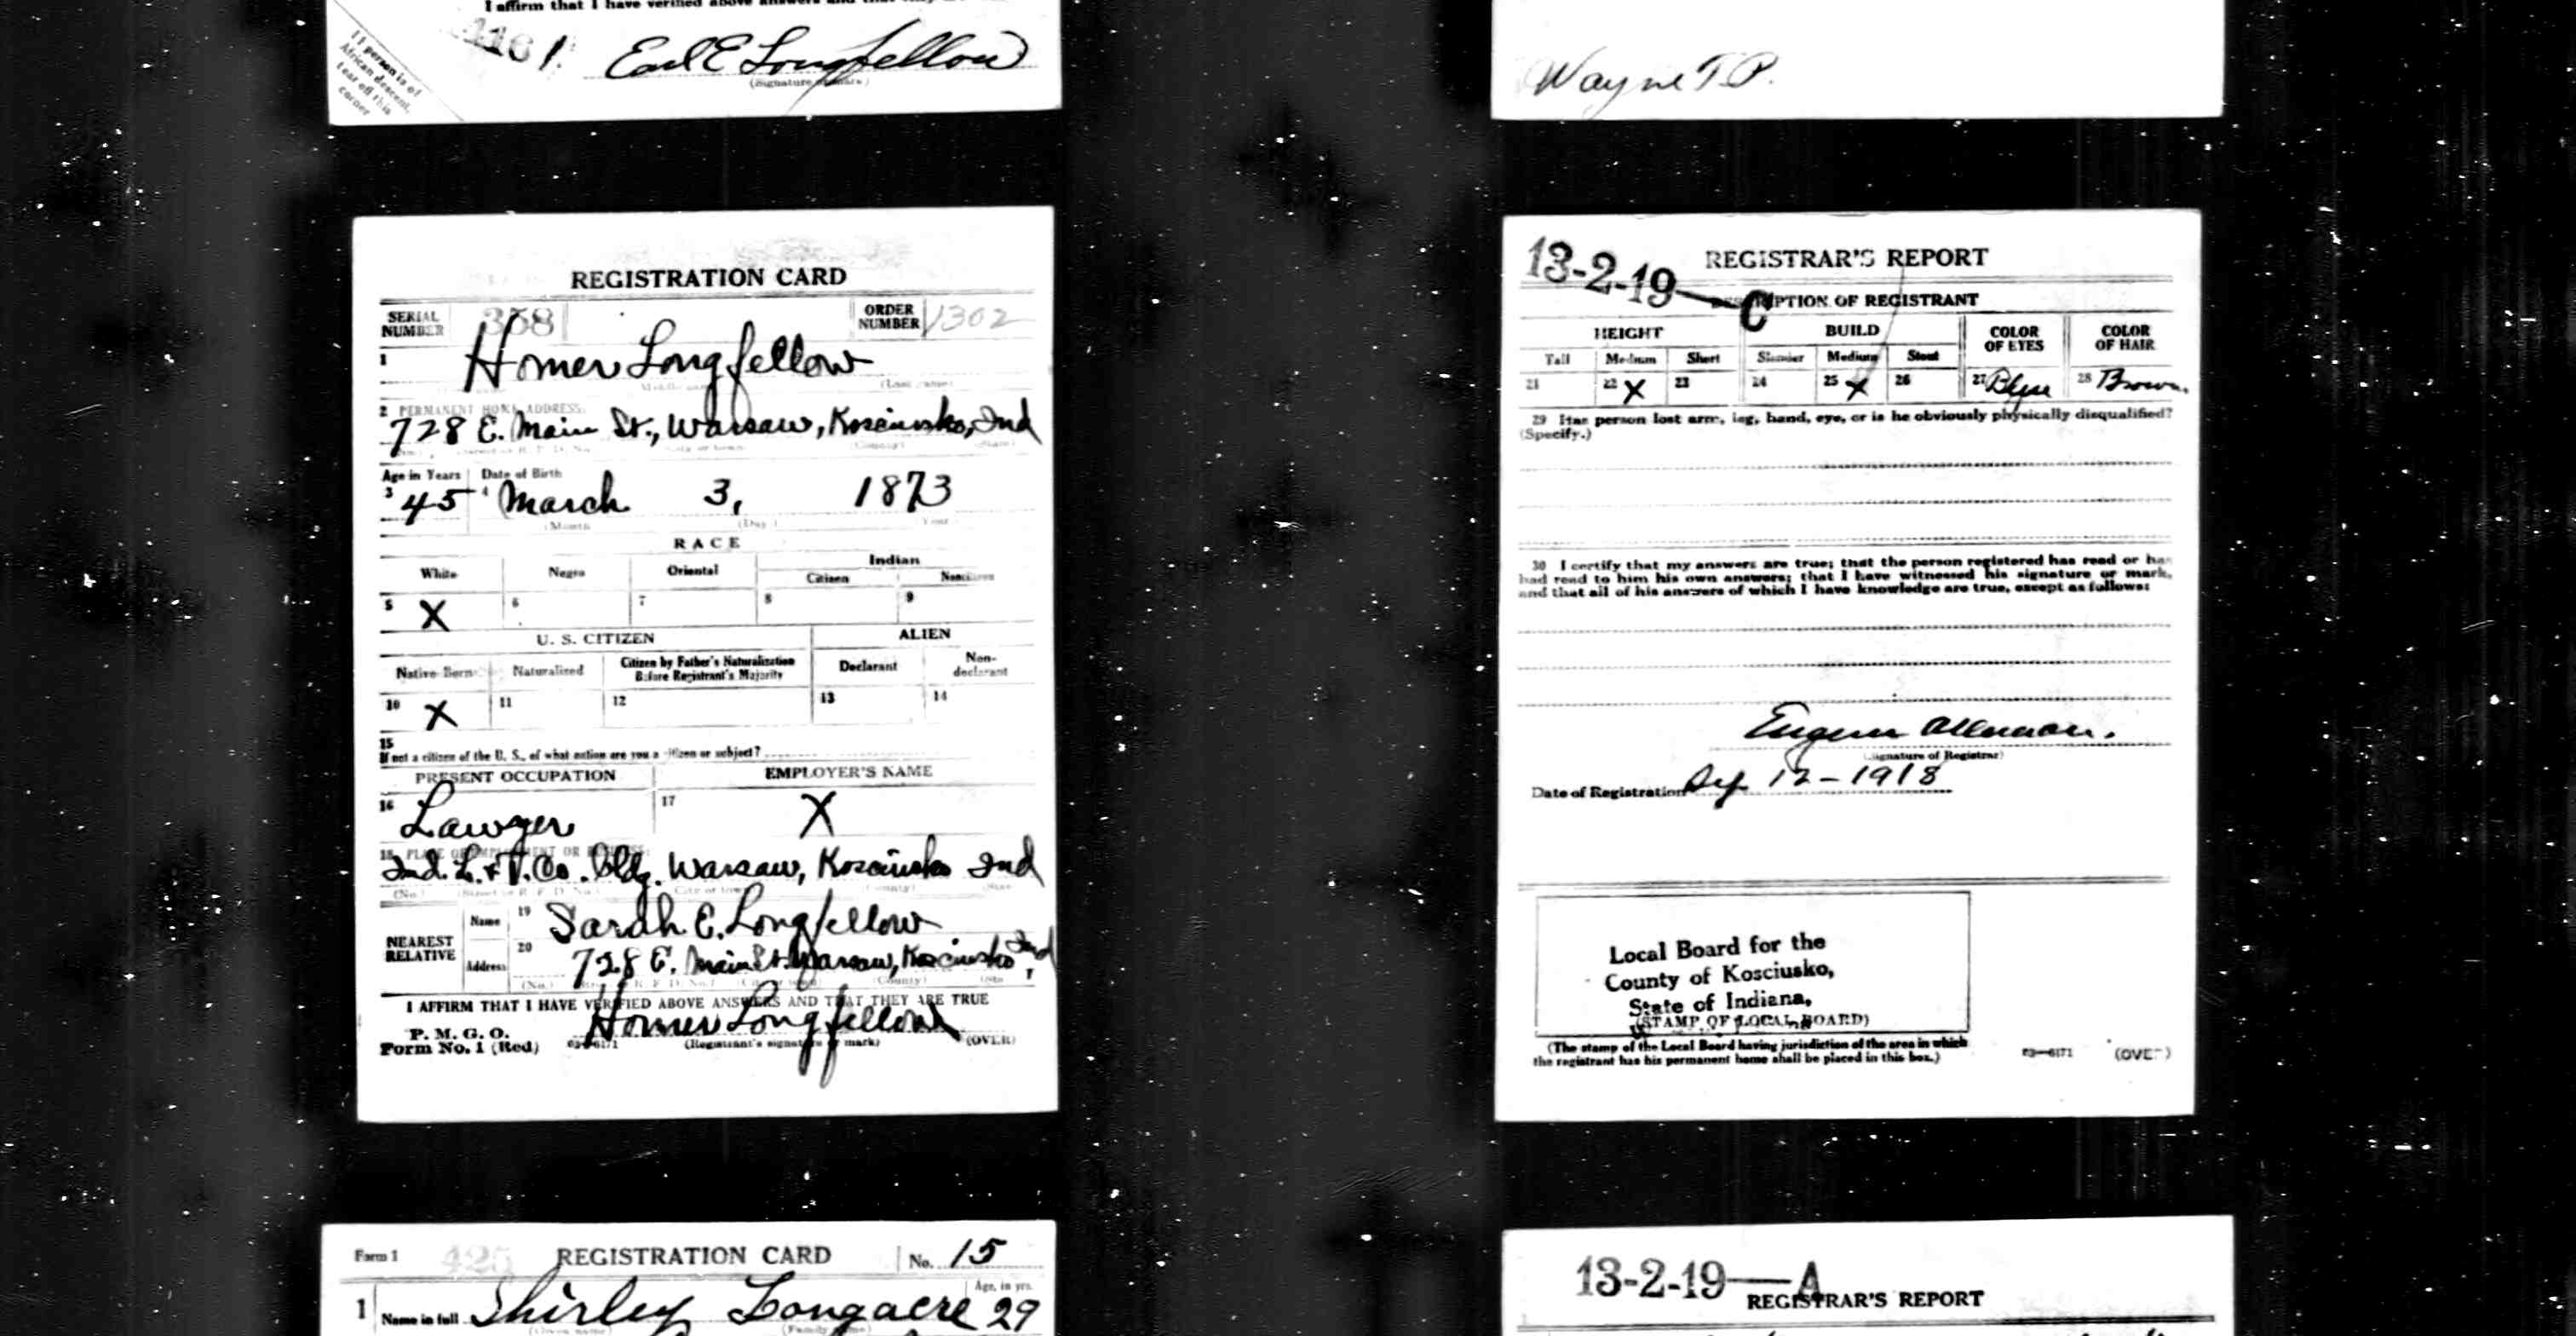 I affirm that I have verified above answers and that they are
If person is of
African descent,
tear off this
corner
Earl E Longfellow
(Signature or mark)
Wayne T.P.
REGISTRATION CARD
SERIAL NUMBER 358
ORDER NUMBER 1302
1 Homer Longfellow
(Last name)
2 PERMANENT HOME ADDRESS:
728 E. Main St., Warsaw, Kosciusko, Ind
Age in Years Date of Birth
3 45 4 March 3, 1873
(Month) (Day) Year
RACE
White Negro Oriental Indian
Citizen Noncitizen
5 X 6 7 8 9
U. S. CITIZEN ALIEN
Native Born Naturalized Citizen by Father's Naturalization Before Registrant's Majority Declarant Non-declarant
10 X 11 12 13 14
15
If not a citizen of the U. S., of what nation are you a citizen or subject?
PRESENT OCCUPATION EMPLOYER'S NAME
16 Lawyer 17 X
18 PLACE OF EMPLOYMENT OR BUSINESS:
Ind. L. & T. Co. Bldg. Warsaw, Kosciusko Ind
NEAREST RELATIVE
Name 19 Sarah E. Longfellow
Address 20 728 E. Main St. Warsaw, Kosciusko, Ind
I AFFIRM THAT I HAVE VERIFIED ABOVE ANSWERS AND THAT THEY ARE TRUE
P. M. G. O.
Form No. 1 (Red) 03-6171 Homer Longfellow
(Registrant's signature or mark) (OVER)
13-2-19-C REGISTRAR'S REPORT
DESCRIPTION OF REGISTRANT
HEIGHT BUILD COLOR OF EYES COLOR OF HAIR
Tall Medium Short Slender Medium Stout
21 22 X 23 24 25 X 26 27 Blue 28 Brown
29 Has person lost arm, leg, hand, eye, or is he obviously physically disqualified?
(Specify.)
30 I certify that my answers are true; that the person registered has read or has
had read to him his own answers; that I have witnessed his signature or mark,
and that all of his answers of which I have knowledge are true, except as follows:
Eugene Alleman.
(Signature of Registrar)
Date of Registration Sep 12-1918
Local Board for the
County of Kosciusko,
State of Indiana,
(STAMP OF LOCAL BOARD)
(The stamp of the Local Board having jurisdiction of the area in which
the registrant has his permanent home shall be placed in this box.)
03-6171 (OVER)
Form 1 425 REGISTRATION CARD No. 15
Age, in yrs.
1 Name in full Shirley Longacre 29
13-2-19-A
REGISTRAR'S REPORT